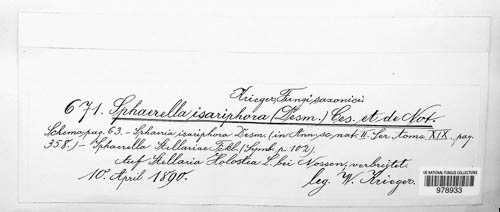 Krieger, Fungi saxonici
671. Sphaerella isariphora (Desm.) Ces. et de Not.
Schema pag. 63. – Sphaeria isariphora Desm. (in Ann. sc. nat. II. Ser. tome XIX. pag.
358.) – Sphaerella Stellariae Fckl. (Symb. p. 102).
Auf Stellaria Holostea L. bei Nossen, verbreitet.
10. April 1890. leg. W. Krieger.
US NATIONAL FUNGUS COLLECTIONS
978933